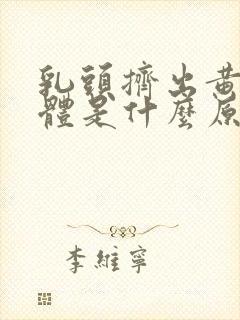 乳頭擠出黃
體是什麼原
李維寧